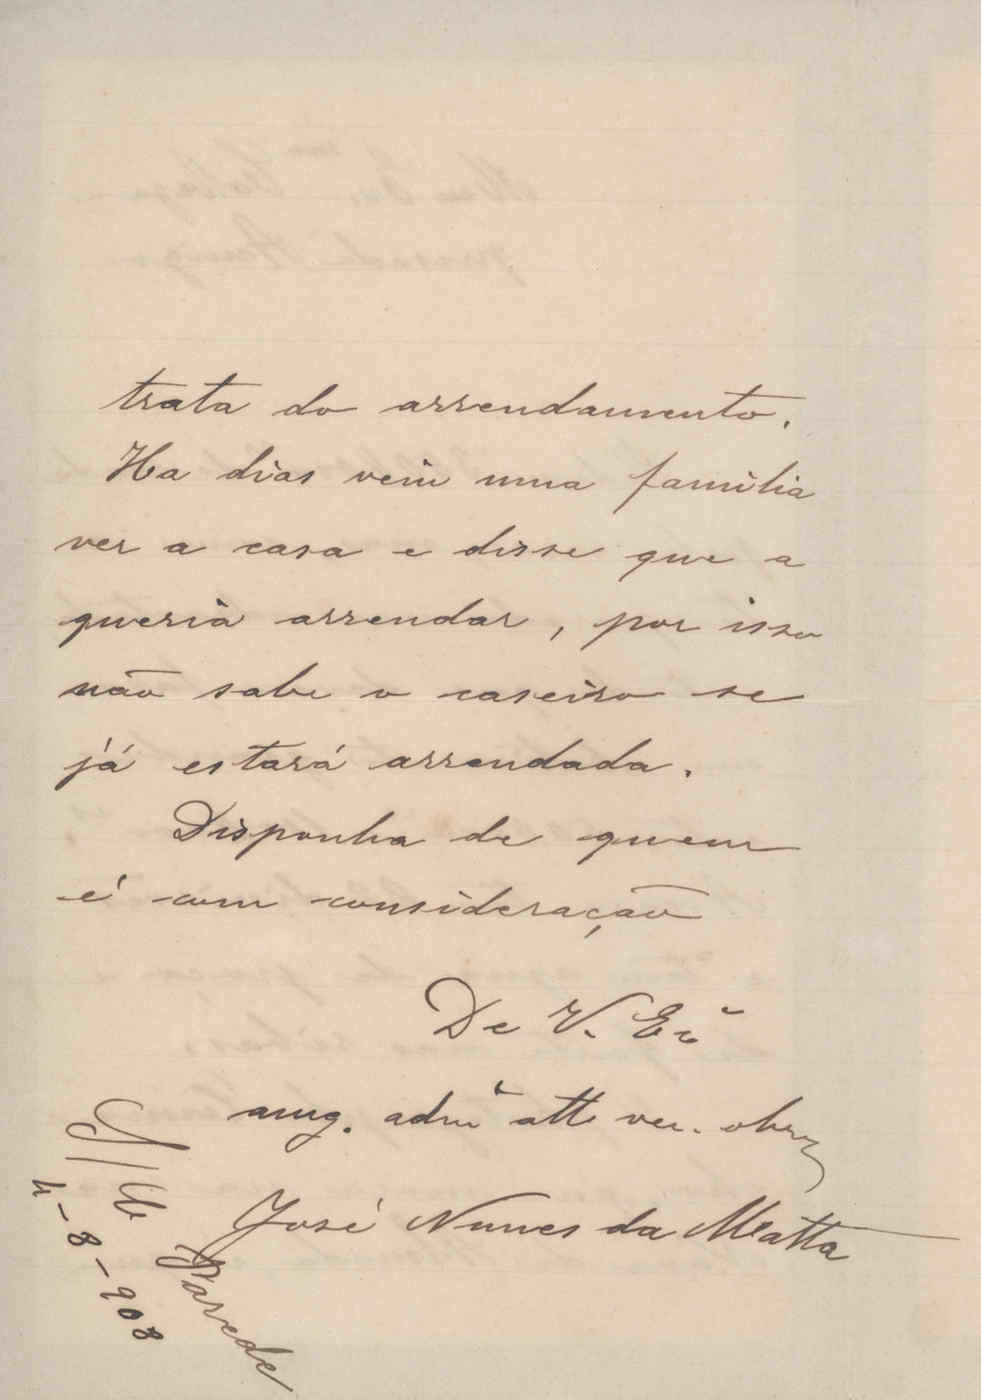 trata do arrendamento.
Ha dias veiu uma familia
ver a casa e disse que a
queria arrendar, por isso
não sabe o caseiro se
já estará arrendada.
Disponha de quem
é com consideração
De V. Exª
amg. admº attº ven. obrg
José Nunes da Matta
Parede
4-8-908